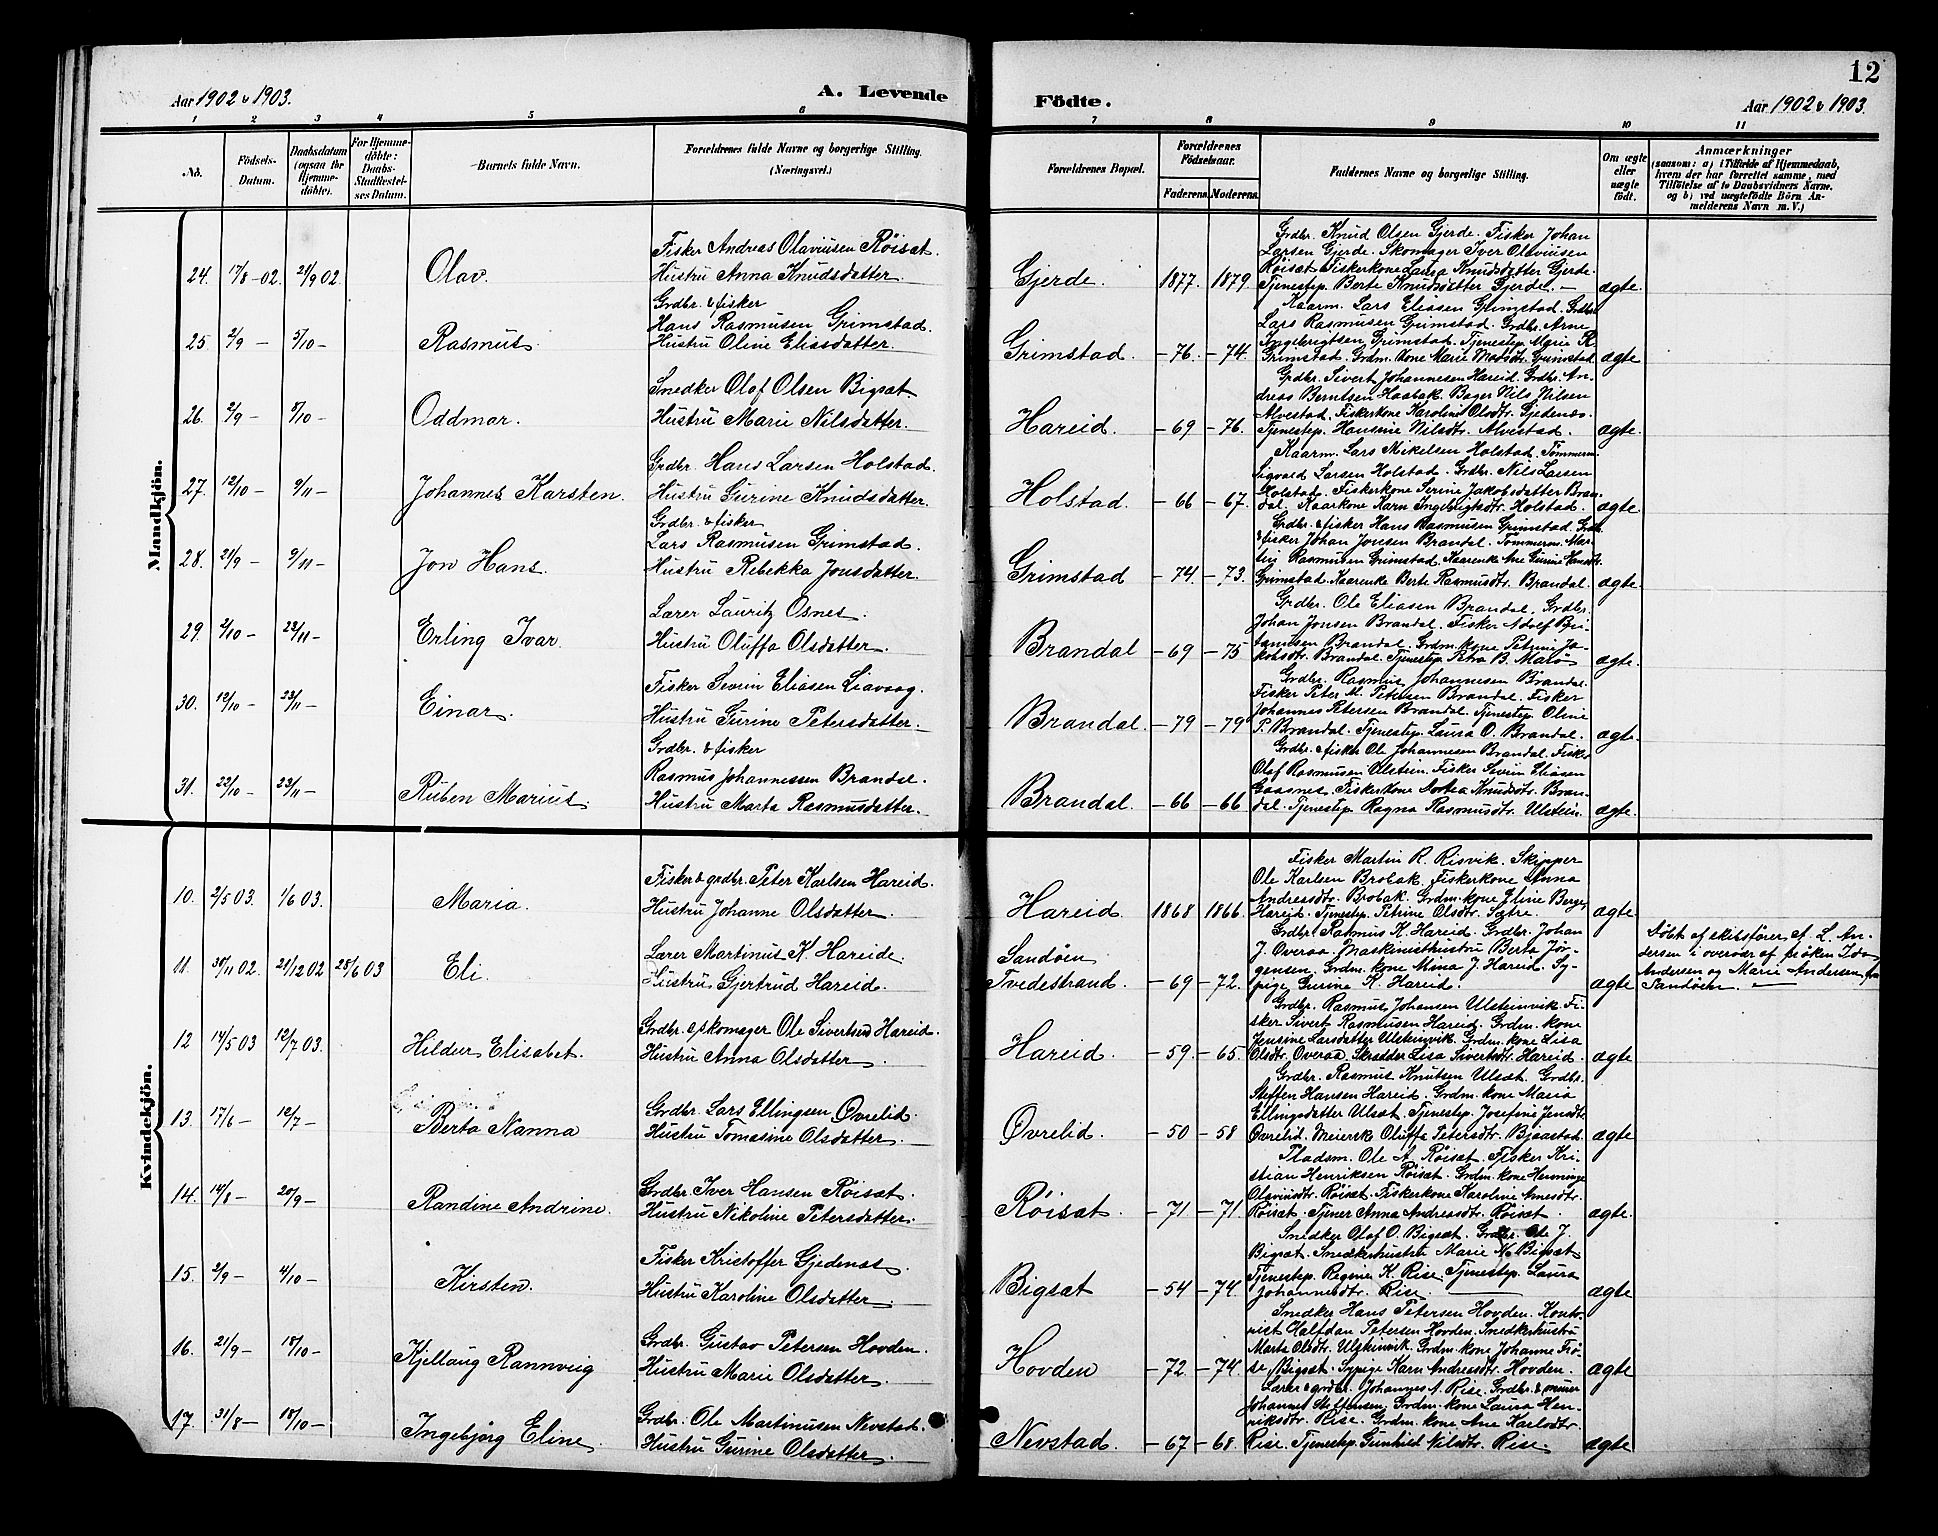 12
Aar 1902 & 1903.
A. Levende
Födte.
Aar 1902 & 1903.
1 2 3 4 5 6 7 8 9 10 11
No.
Födsels-
Datum.
Daabsdatum
(ogsaa for
Hjemme-
döbte).
For Hjemme-
döbte:
Daabs-
Stadfæstel-
ses Datum.
Barnets fulde Navn.
Forældrenes fulde Navne og borgerlige Stilling.
(Næringsvei.)
Forældrenes Bopæl.
Forældrenes
Födselsaar.
Faderens. Moderens.
Faddernes Navne og borgerlige Stilling.
Om ægte
eller
uægte
födt.
Anmærkninger
(saasom: a) i Tilfælde af Hjemmedaab,
hvem der har forrettet samme, med
Tilföielse af to Daabsvidners Navne.
og b) ved uægtefödte Börn An-
melderens Navn m. V.)
Mandkjön.
24. 17/8-02. 21/9 02. Olav.
Fisker Andreas Olaviusen Röisæt.
Hustru Anna Knudsdatter.
Gjerde. 1877. 1879.
Grdbr. Knud Olsen Gjerde. Fisker Johan
Larsen Gjerde. Skomager Iver Olaviusen
Röisæt. Fiskerkone Laura Knudsdatter Gjerde.
Tjenestep. Berte Knudsdatter Gjerde.
ægte.
25 2/9 - 5/10 - Rasmus.
Grdbr. & fisker
Hans Rasmusen Grimstad.
Hustru Oline Eliasdatter.
Grimstad. - 76. - 74.
Kaarm. Lars Eliasen Grimstad. Grdbr.
Lars Rasmusen Grimstad. Grdbr. Arne
Ingebrigtsen Grimstad. Tjenestep. Maria R
Grimstad. Grdm. kone Marie Madsdtr. Grimstad
ægte
26. 2/9 - 5/10 - Oddmar.
Snedker Olof Olsen Bigsæt
Hustru Marie Nilsdatter.
Hareid. - 69 - 76.
Grdbr. Sivert Johannesen Hareid. Grdbr. An-
dreas Berntsen Haabak. Bager Nils Nilsen
Alvestad. Fiskerkone Karoline Olsdtr. Gjedenæs.
Tjenestep. Hansine Nilsdtr. Alvestad.
ægte.
27. 12/10 - 9/11 - Johannes Karsten.
Grdbr. Hans Larsen Holstad.
Hustru Gurine Knudsdatter.
Holstad. - 66 - 67.
Kaarm. Lars Mikelsen Holstad. Tömmerm.
Sigvald Larsen Holstad. Grdbr. Nils Larsen
Holstad. Fiskerkone Serine Jakobsdatter Bran-
dal. Kaarkone Karn Ingebrigtsdtr. Holstad.
ægte.
28. 21/9 - 9/11 - Jon Hans.
Grdbr. & fisker
Lars Rasmusen Grimstad.
Hustru Rebekka Jonsdatter.
Grimstad - 74. - 73.
Grdbr. & fisker Hans Rasmusen Grimstad. Grdbr.
& fisker Johan Jonsen Brandal. Tömmerm. Mar-
tin Rasmusen Grimstad. Kaarenke Ane Gurine Hansdtr.
Grimstad. Kaarenke Berte Rasmusdtr. Brandal.
ægte.
29. 2/10 - 23/11 - Erling Ivar.
Lærer Lauritz Osnes.
Hustru Oluffa Olsdatter.
Brandal - 69 - 75
Grdbr. Ole Eliasen Brandal. Grdbr.
Johan Jonsen Brandal. Fisker Adolf Bri-
tanusen Brandal. Grdm. kone Petrine Ja-
kobsdtr. Brandal. Tjenestep. Petra B. Marö
ægte.
30. 12/10 - 23/11 - Einar.
Fisker Sevrin Eliasen Liavaag.
Hustru Gurine Petersdatter.
Brandal. - 79 - 79
Grdbr. Rasmus Johannesen Brandal.
Fisker Peter M. Petersen Brandal. Fisker
Johannes Petersen Brandal. Tjenestep. Oline
P. Brandal. Tjenestep. Laura O. Brandal.
ægte.
31. 22/10 - 23/11 - Ruben Marius.
Grdbr. & fisker
Rasmus Johannessen Brandal.
Hustru Marta Rasmusdatter.
Brandal. - 66 - 66
Grdbr. & fisker Ole Johannesen Brandal. Fisker
Olaf Rasmusen Ulstein. Fisker Sevrin Eliasen
Gaasnes. Fiskerkone Dortea Knudsdtr. Bran-
dal. Tjenestep. Ragna Rasmusdtr. Ulstein.
ægte.
Kvindekjön.
10. 2/5 03. 1/6 03. Maria.
Fisker & grdbr. Peter Karlsen Hareid.
Hustru Johanne Olsdatter.
Hareid. 1868 1866.
Fisker Martin R. Risvik. Skipper
Ole Karlsen Brobak. Fiskerkone Anna
Andreasdtr. Brobak. Grdm. kone Eline Berge
Hareid. Tjenestep. Petrine Olsdtr. Sætre.
ægte
11. 30/11 02. 21/12 02 28/6 03 Eli.
Lærer Martinus K. Hareide.
Hustru Gjertrud Hareid.
Sandöen
Tvedestrand - 69 - 72.
Grdbr. Rasmus K. Hareid. Grdbr. Johan
J. Overaa. Maskinisthustru Berta Jör-
gensen. Grdm. kone Mina J. Hareid. Sy-
pige Gurine K. Hareid.
ægte
Döbt af skibsförer A. L. An-
dersen i overvær af fröken Ida
Andersen og Marie Andersen fra
Sandöen.
12 14/5 03 12/7 03. Hildur Elisabet.
Grdbr. & skomager Ole Sivertsen Hareid.
Hustru Anna Olsdatter.
Hareid. - 59 - 65.
Grdbr. Rasmus Johansen Ulsteinvik. Fi-
sker Sivert Rasmusen Hareid. Grdm. kone
Jensine Larsdatter Ulsteinvik. Grdm. kone Lisa
Olsdtr. Overaa. Skrædder Lisa Sivertsdtr. Hareid.
ægte
13. 17/6 - 12/7 - Berta Nanna
Grdbr. Lars Ellingsen Övrelid.
Hustru Tomasine Olsdatter.
Övrelid. - 50 - 58
Grdbr. Rasmus Knutsen Ulsæt. Grdbr.
Steffen Hansen Hareid. Grdm. kone Maria
Ellingsdatter Ulsæt. Tjenestep. Josefine Jensdtr.
Övrelid. Meierske Oluffa Petersdtr. Bjaastad.
ægte
14. 14/8 - 20/9 - Randine Andrine.
Grdbr. Iver Hansen Röisæt.
Hustru Nikoline Petersdatter.
Röisæt - 71 - 71.
Pladsm. Ole A. Röisæt. Fisker Kri-
stian Henriksen Röisæt. Grdm. kone Henninge
Olavinsdtr. Röisæt. Fiskerkone Karoline Arnesdtr.
Röisæt. Tjener Anna Andreasdtr. Röisæt.
ægte.
15. 2/9 - 4/10 - Kirsten.
Fisker Kristoffer Gjedenæs.
Hustru Karoline Olsdatter.
Bigsæt - 54 - 74.
Snedker Olof O. Bigsæt. Grdbr. Ole J.
Bigsæt. Snedkerhustru Marie N. Bigsæt
Tjenestep. Regine K. Rise. Tjenestep. Laura
Johannesdtr. Rise.
ægte
16. 21/9 - 18/10 - Kjellaug Rannveig
Grdbr. Gustav Petersen Hovden.
Hustru Marie Olsdatter.
Hovden - 72 - 74.
Snedker Hans Petersen Hovden. Kontor-
rist Halfdan Petersen Hovden. Snedkerhustru
Marta Olsdtr. Ulsteinvik. Grdm. kone Johanne Tro-
se, Bigsæt. Sypige Karn Andreasdtr. Hovden.
ægte
17. 31/8 - 18/10 - Ingebjørg Eline.
Grdbr. Ole Martinusen Nevstad.
Hustru Gurine Olsdatter.
Nevstad. - 67 - 68.
Lærer & grdbr. Johannes A. Rise. Grdbr. & murer
Johannes Steffensen. Grdm. kone Laura Hen-
riksdtr. Rise. Grdm. kone Ane Karlsdtr.
Rise. Tjenestep. Gunhild Nilsdtr. Rise
ægte